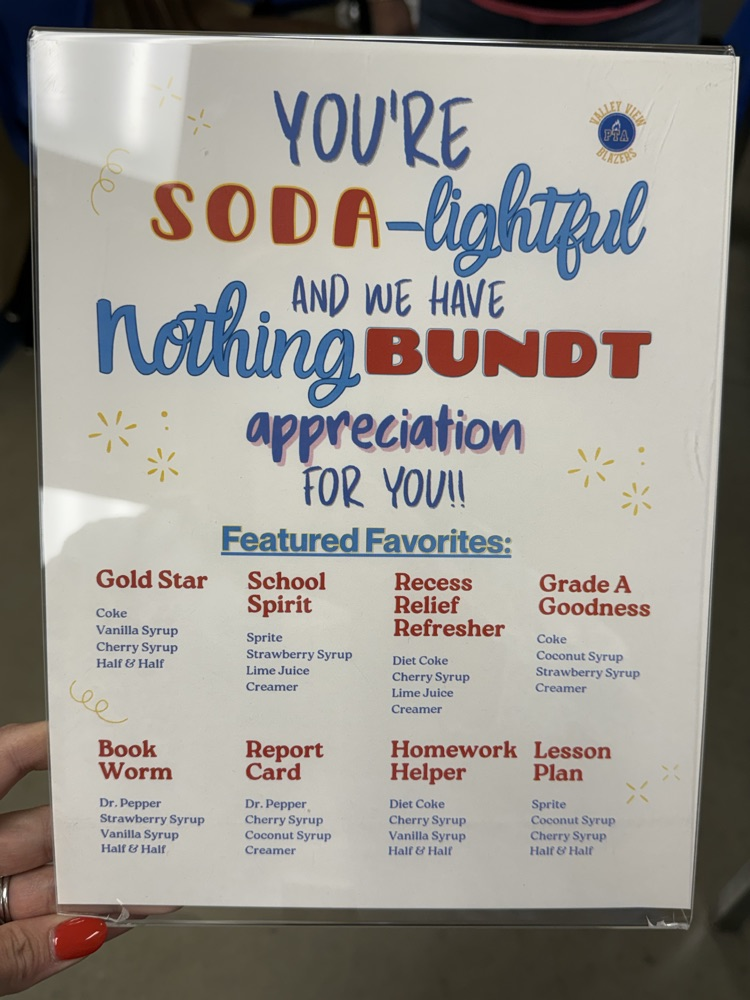 VALLEY VIEW
PTA
BLAZERS
YOU'RE
SODA-lightful
AND WE HAVE
Nothing BUNDT
appreciation
FOR YOU!!
Featured Favorites:
Gold Star
Coke
Vanilla Syrup
Cherry Syrup
Half & Half
School
Spirit
Sprite
Strawberry Syrup
Lime Juice
Creamer
Recess
Relief
Refresher
Diet Coke
Cherry Syrup
Lime Juice
Creamer
Grade A
Goodness
Coke
Coconut Syrup
Strawberry Syrup
Creamer
Book
Worm
Dr. Pepper
Strawberry Syrup
Vanilla Syrup
Half & Half
Report
Card
Dr. Pepper
Cherry Syrup
Coconut Syrup
Creamer
Homework
Helper
Diet Coke
Cherry Syrup
Vanilla Syrup
Half & Half
Lesson
Plan
Sprite
Coconut Syrup
Cherry Syrup
Half & Half